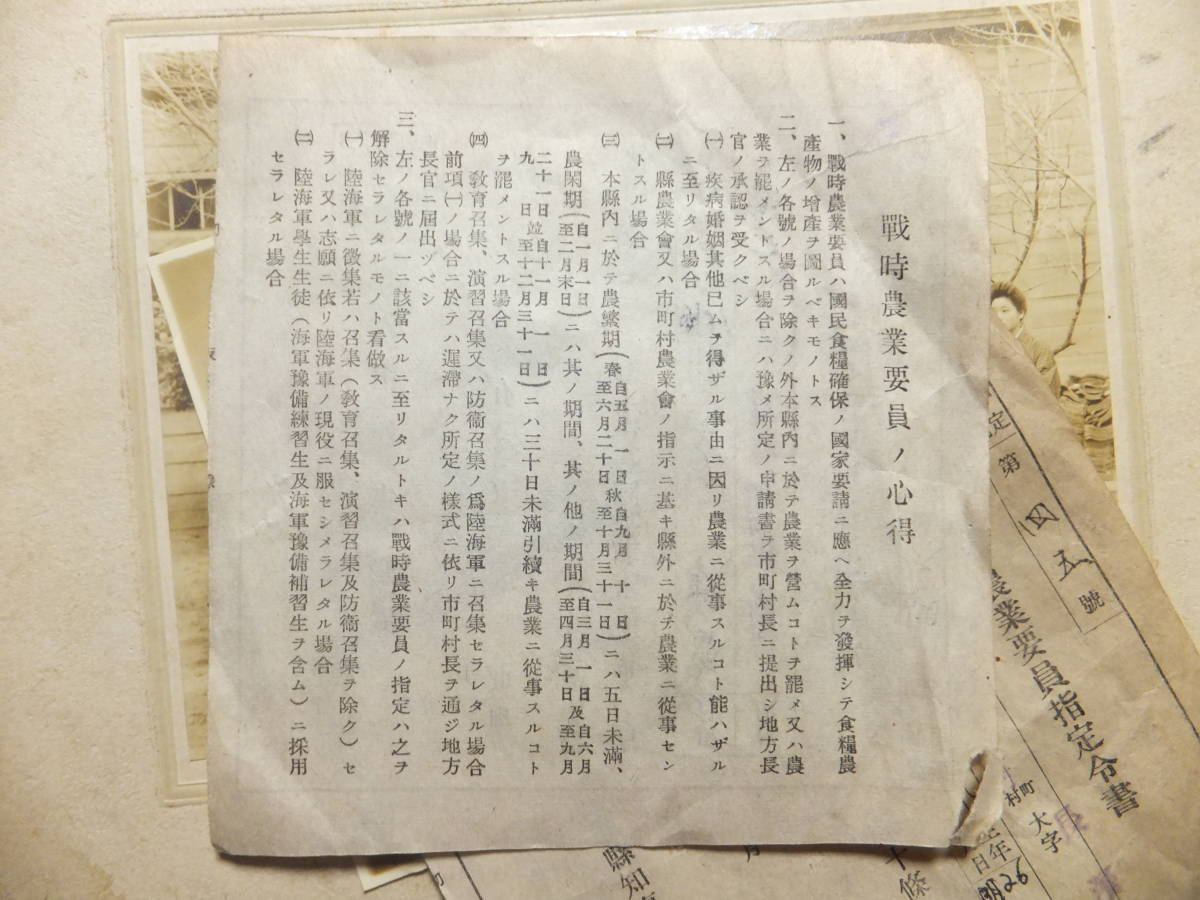 戰時農業要員ノ心得
一、戰時農業要員ハ國民食糧確保ノ國家要請ニ應ヘ全力ヲ發揮シテ食糧農
產物ノ增產ヲ圖ルベキモノトス
二、左ノ各號ノ場合ヲ除クノ外本縣內ニ於テ農業ヲ營ムコトヲ罷メ又ハ農
業ヲ罷メントスル場合ニハ豫メ所定ノ申請書ヲ市町村長ニ提出シ地方長
官ノ承認ヲ受クベシ
㈠ 疾病婚姻其他已ムヲ得ザル事由ニ因リ農業ニ從事スルコト能ハザル
ニ至リタル場合
㈡ 縣農業會又ハ市町村農業會ノ指示ニ基キ縣外ニ於テ農業ニ從事セン
トスル場合
㈢ 本縣內ニ於テ農繁期(春自五月一日至六月二十日秋自九月十日至十月三十一日)ニハ五日未滿、
農閑期(自一月一日至二月末日)ニハ其ノ期間、其ノ他ノ期間(自三月一日至四月三十日及自六月
二十一日至九月九日竝自十一月一日至十二月三十一日)ニハ三十日未滿引續キ農業ニ從事スルコト
ヲ罷メントスル場合
㈣ 敎育召集、演習召集又ハ防衞召集ノ爲陸海軍ニ召集セラレタル場合
前項㈠ノ場合ニ於テハ遲滯ナク所定ノ樣式ニ依リ市町村長ヲ通ジ地方
長官ニ屆出ヅベシ
三、左ノ各號ノ一ニ該當スルニ至リタルトキハ戰時農業要員ノ指定ハ之ヲ
解除セラレタルモノト看做ス
㈠ 陸海軍ニ徵集若ハ召集(敎育召集、演習召集及防衞召集ヲ除ク)セ
ラレ又ハ志願ニ依リ陸海軍ノ現役ニ服セシメラレタル場合
㈡ 陸海軍學生生徒(海軍豫備練習生及海軍豫備補習生ヲ含ム)ニ採用
セラレタル場合
定
第四五號
農業要員指定令書
町村
大字
年
日
26
十條
縣知事
月